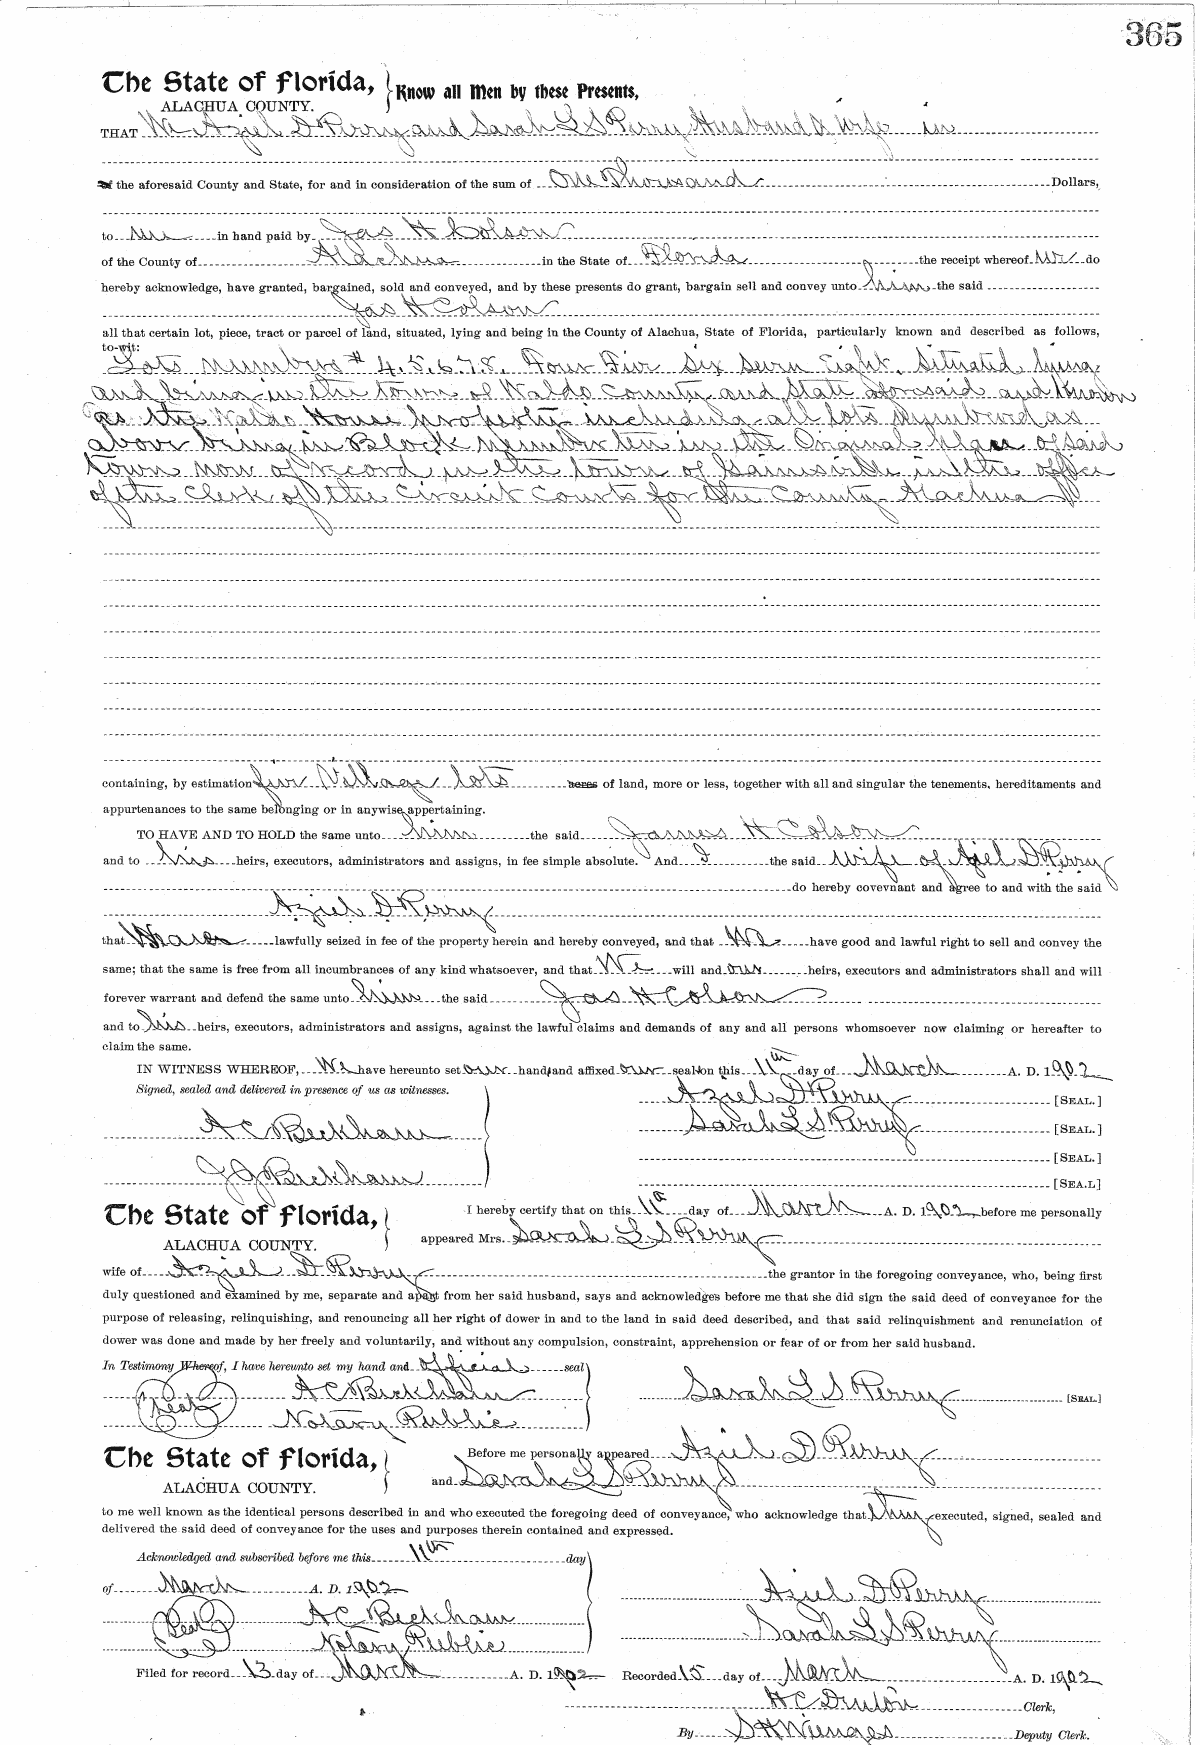 365
The State of Florida, Know all Men by these Presents,
ALACHUA COUNTY.
THAT We Aziel D Perry and Sarah L S Perry Husband & Wife in
of the aforesaid County and State, for and in consideration of the sum of One Thousand Dollars,
to us in hand paid by Jas H Colson
of the County of Alachua in the State of Florida the receipt whereof we do
hereby acknowledge, have granted, bargained, sold and conveyed, and by these presents do grant, bargain sell and convey unto him the said
Jas H Colson
all that certain lot, piece, tract or parcel of land, situated, lying and being in the County of Alachua, State of Florida, particularly known and described as follows,
to-wit:
Lots Numbers # 4.5.6.7.8. Four Five Six Seven Eight. Situated, lying
and being in the town of Waldo County and State aforesaid and Known
as the Waldo House property including all lots Numbered as
above being in Block Number ten in the Original plan of said
town now of record in the town of Gainesville in the office
of the Clerk of the Circuit Courts for the County Alachua
containing, by estimation five Village lots acres of land, more or less, together with all and singular the tenements, hereditaments and
appurtenances to the same belonging or in anywise appertaining.
TO HAVE AND TO HOLD the same unto him the said James H Colson
and to his heirs, executors, administrators and assigns, in fee simple absolute. And I the said Wife of Aziel D Perry
do hereby covevnant and agree to and with the said
Aziel D Perry
that lawfully seized in fee of the property herein and hereby conveyed, and that We have good and lawful right to sell and convey the
same; that the same is free from all incumbrances of any kind whatsoever, and that We will and our heirs, executors and administrators shall and will
forever warrant and defend the same unto him the said Jas H Colson
and to his heirs, executors, administrators and assigns, against the lawful claims and demands of any and all persons whomsoever now claiming or hereafter to
claim the same.
IN WITNESS WHEREOF, We have hereunto set our hand and affixed our seal on this 11th day of March A. D. 1902
Signed, sealed and delivered in presence of us as witnesses. Aziel D Perry [SEAL.]
A C Beckham Sarah L S Perry [SEAL.]
[SEAL.]
J G Beckham [SEA.L]
The State of Florida, I hereby certify that on this 11th day of March A. D. 1902 before me personally
ALACHUA COUNTY. appeared Mrs. Sarah L S Perry
wife of Aziel D Perry the grantor in the foregoing conveyance, who, being first
duly questioned and examined by me, separate and apart from her said husband, says and acknowledges before me that she did sign the said deed of conveyance for the
purpose of releasing, relinquishing, and renouncing all her right of dower in and to the land in said deed described, and that said relinquishment and renunciation of
dower was done and made by her freely and voluntarily, and without any compulsion, constraint, apprehension or fear of or from her said husband.
In Testimony Whereof, I have hereunto set my hand and official seal
Seal A C Beckham Sarah L S Perry [SEAL]
Notary Public
The State of Florida, Before me personally appeared Aziel D Perry
ALACHUA COUNTY. and Sarah L S Perry
to me well known as the identical persons described in and who executed the foregoing deed of conveyance, who acknowledge that they executed, signed, sealed and
delivered the said deed of conveyance for the uses and purposes therein contained and expressed.
Acknowledged and subscribed before me this 11th day
of March A. D. 1902 Aziel D Perry
Seal A C Beckham
Notary Public Sarah L S Perry
Filed for record 13 day of March A. D. 1902 Recorded 15 day of March A. D. 1902
H C Denton Clerk,
By S H Wienges Deputy Clerk.